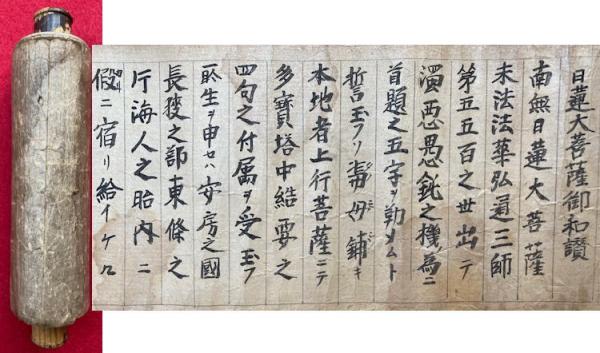 日蓮大菩薩御和讃
南無日蓮大菩薩
末法法華弘通三師
第五五百之世出テ
濁悪愚鈍之機為ニ
首題之五字ヲ勤メムト
誓玉フソ
本地者上行菩薩ニテ
多寶塔中結要之
四句之付属ヲ受玉フ
所生ヲ申セハ安房之國
長狹之郡東條之
片海人之胎内ニ
假ニ宿リ給イケル